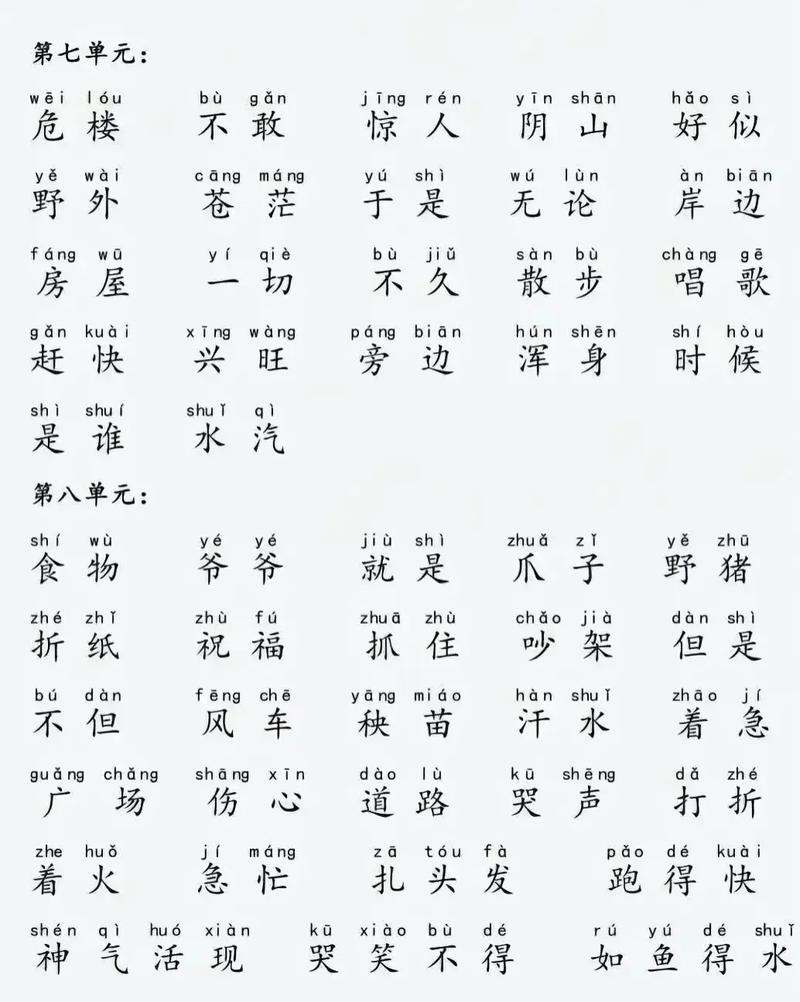 第七单元：
wēi lóu bù gǎn jīng rén yīn shān hǎo sì
危楼 不敢 惊人 阴山 好似
yě wài cāng máng yú shì wú lùn àn biān
野外 苍茫 于是 无论 岸边
fáng wū yí qiè bù jiǔ sàn bù chàng gē
房屋 一切 不久 散步 唱歌
gǎn kuài xīng wàng páng biān hún shēn shí hòu
赶快 兴旺 旁边 浑身 时候
shì shuí shuǐ qì
是谁 水汽
第八单元：
shí wù yé yé jiù shì zhuǎ zǐ yě zhū
食物 爷爷 就是 爪子 野猪
zhé zhǐ zhù fú zhuā zhù chǎo jià dàn shì
折纸 祝福 抓住 吵架 但是
bú dàn fēng chē yāng miáo hàn shuǐ zhāo jí
不但 风车 秧苗 汗水 着急
guǎng chǎng shāng xīn dào lù kū shēng dǎ zhé
广场 伤心 道路 哭声 打折
zhe huǒ jí máng zā tóu fà pǎo dé kuài
着火 急忙 扎头发 跑得快
shén qì huó xiàn kū xiào bù dé rú yú dé shuǐ
神气活现 哭笑不得 如鱼得水